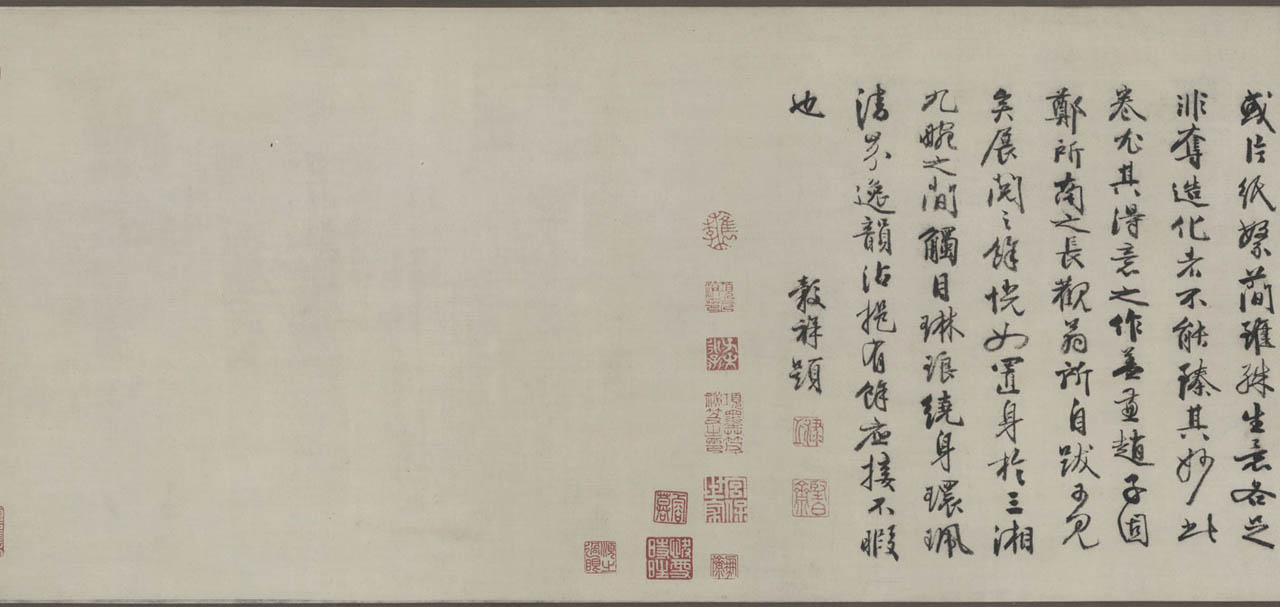 或片紙繁簡雖殊生意各足
非奪造化者不能臻其妙此
卷尤其得意之作盖兼趙子固
鄭所南之長觀翁所自跋可見
矣展閱之餘恍如置身於三湘
九畹之間觸目琳琅繞身環珮
清芬逸韻沾挹有餘應接不暇
也
穀祥題